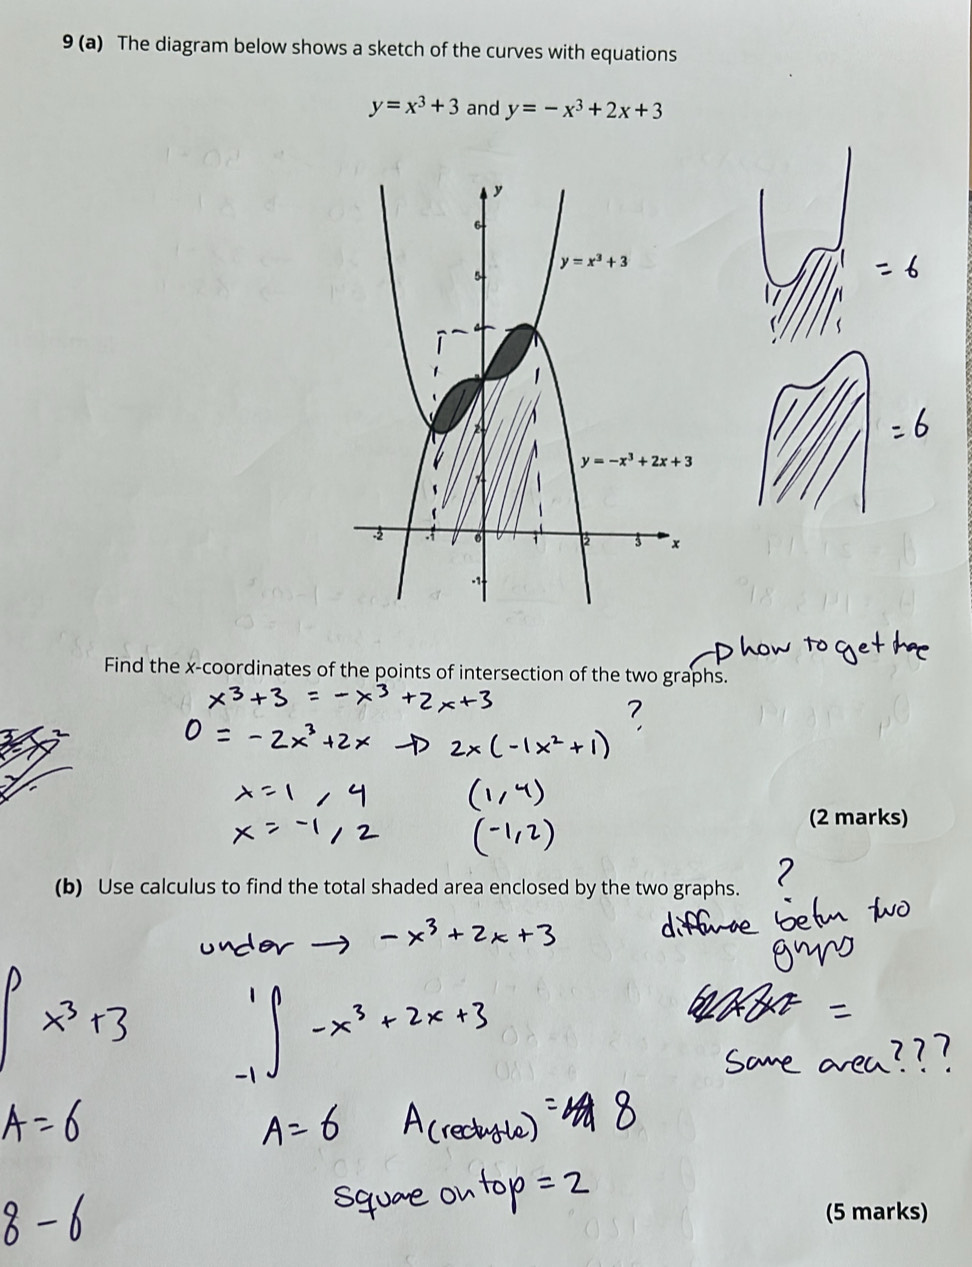 9 (a) The diagram below shows a sketch of the curves with equations
y = x³ + 3 and y = − x³ + 2x + 3
y
6
5
4
2
1
-2
-1
0
1
2
3
x
-1
y = x³ + 3
y = −x³ + 2x + 3
= 6
= 6
how to get
Find the x-coordinates of the points of intersection of the two graphs.
x³ + 3 = −x³ + 2x + 3
?
0 = −2x³ + 2x → 2x (−1x² + 1)
x = 1, 4 (1, 4)
x = −1, 2 (−1, 2)
(2 marks)
(b) Use calculus to find the total shaded area enclosed by the two graphs.
?
under → −x³ + 2x + 3
two
∫ x³ + 3
1
∫ −x³ + 2x + 3
-1
=
Same area???
A = 6
A = 6
A(rectangle) = 8
Square on top = 2
8 − 6
(5 marks)